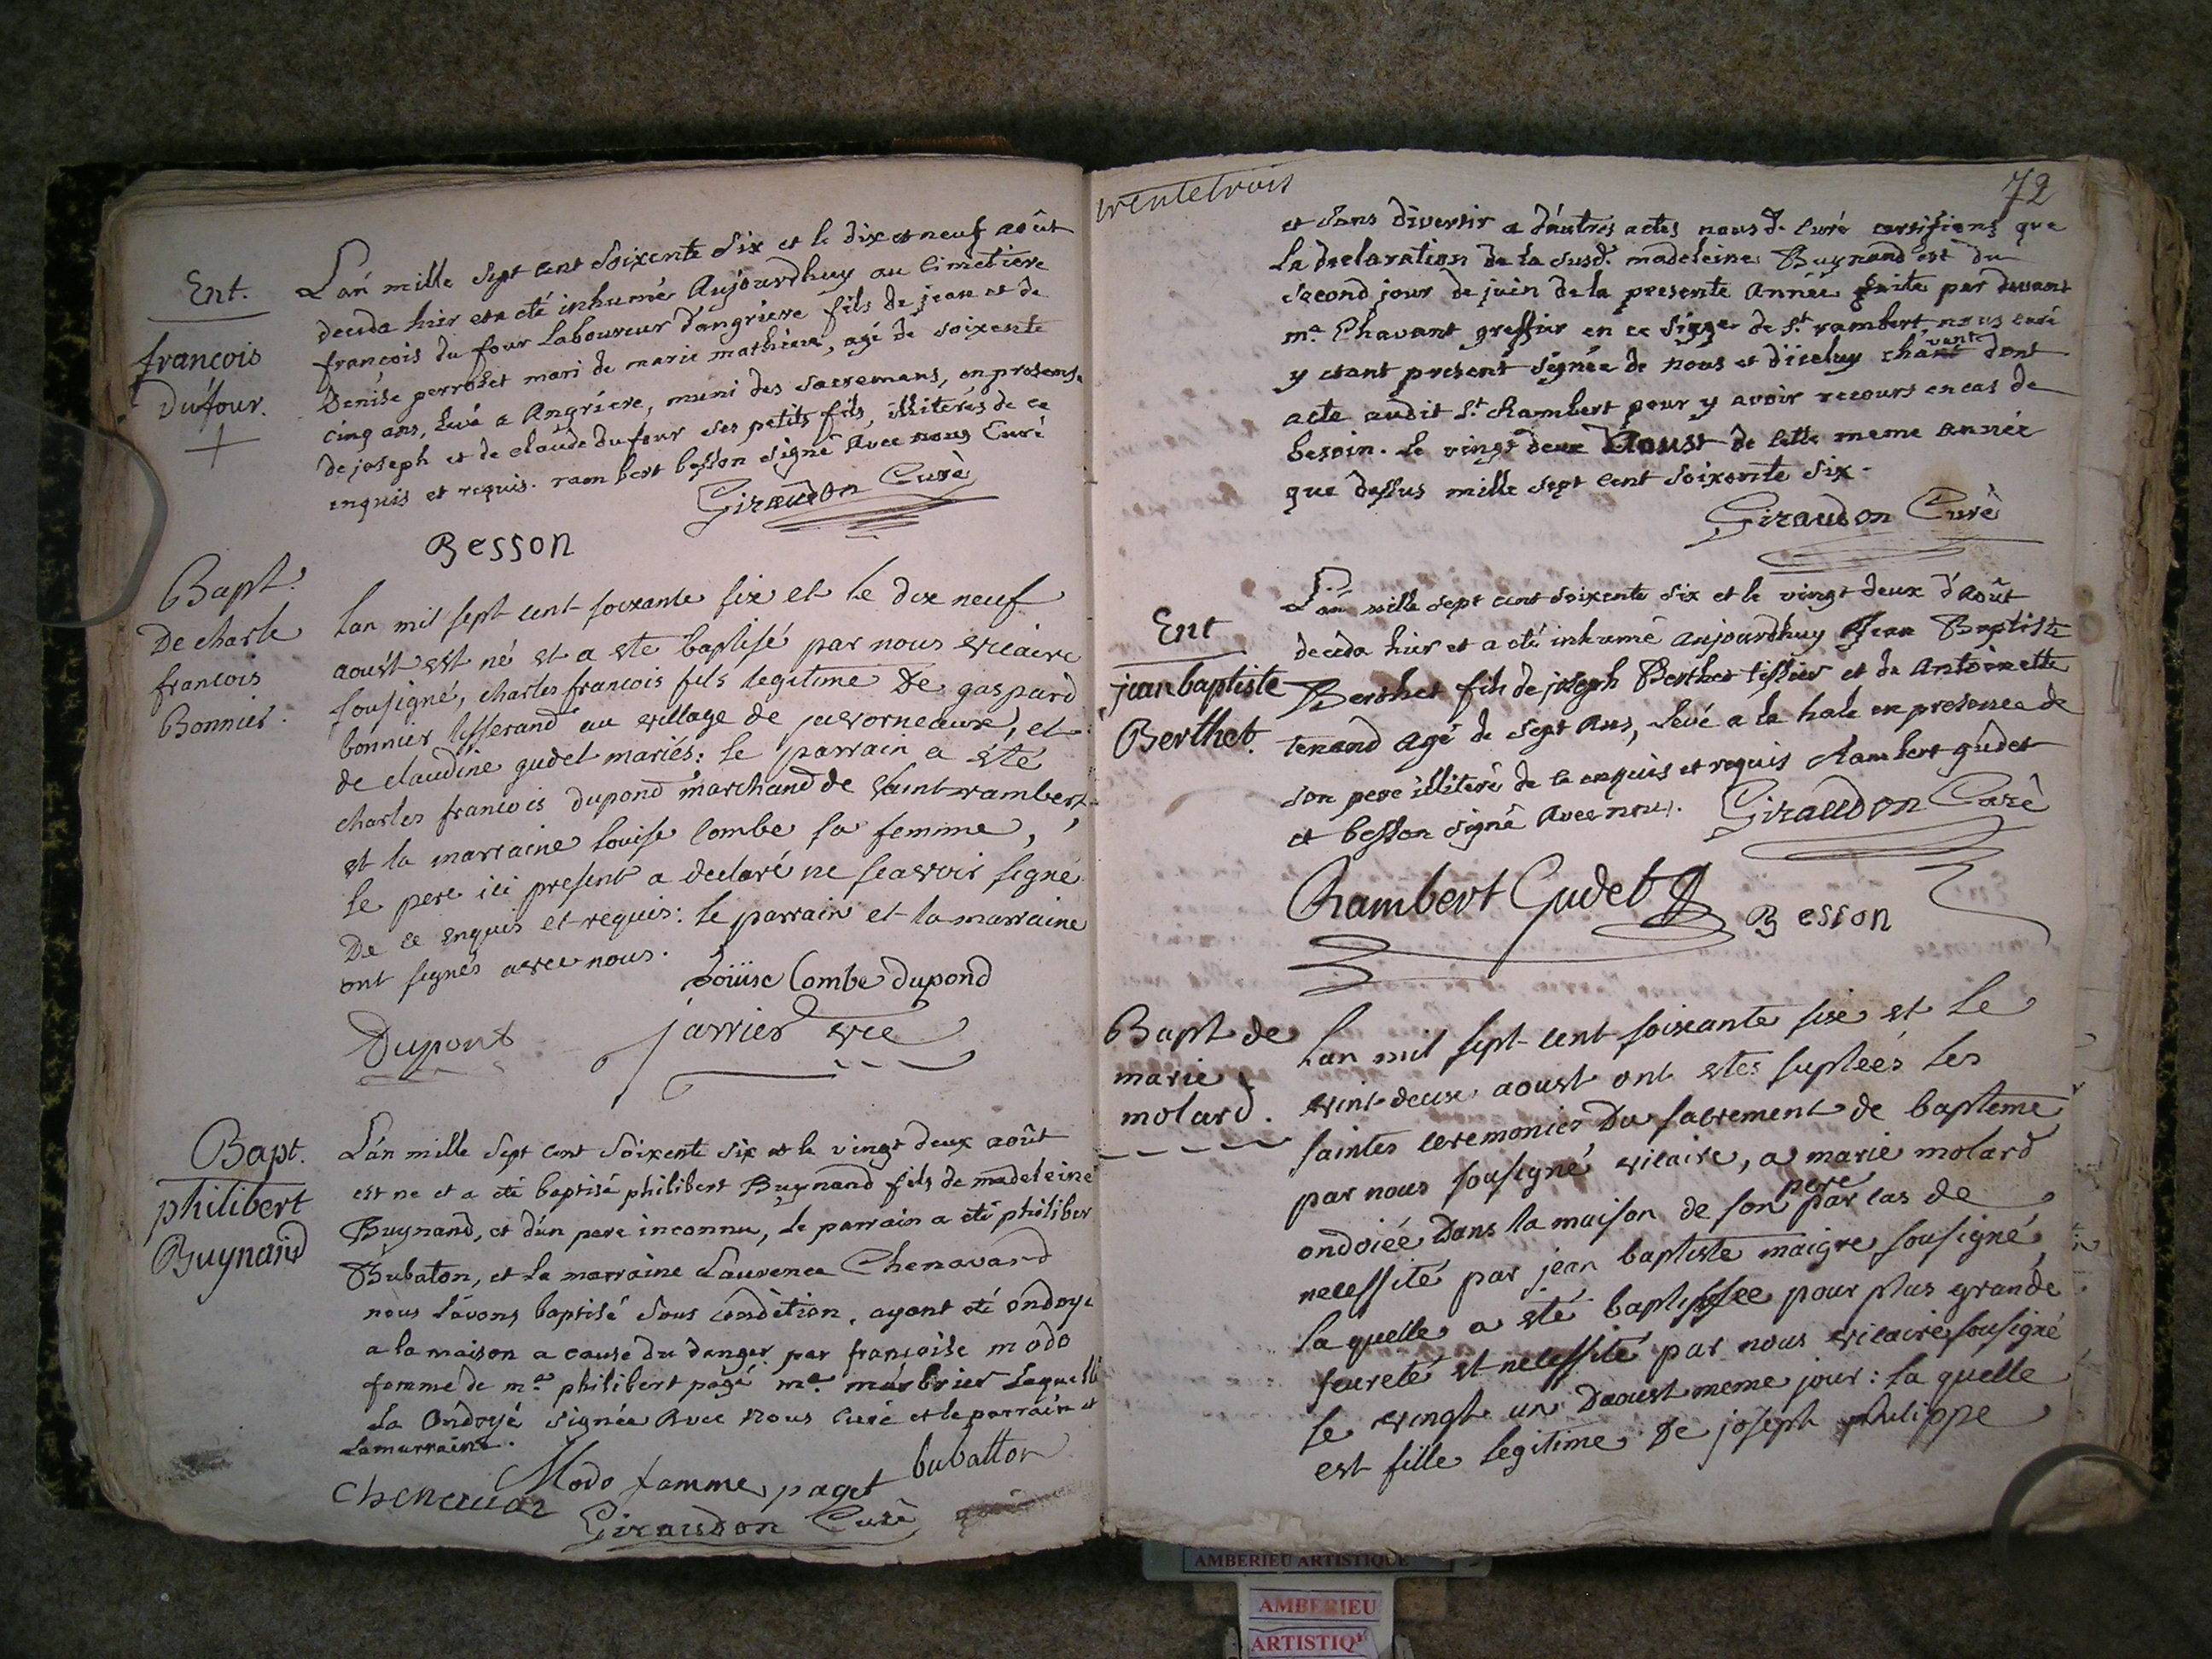 Ent.
francois
Dufour.
L'an mille sept cent soixente six et le dix et neuf août
deceda hier et a eté inhumé aujourdhuy au cimetiere
francois du four laboureur d'angriere fils de jean et de
Denise perrodet mari de marie mathieu, agé de soixente
cinq ans, levé a Angriere, muni des sacremens, en presence
de joseph et de claude dufour ses petits fils, illiterés de ce
enquis et requis. rambert besson signé Avec nous Curé
Giraudon Curé
Besson
Bapt.
De charle
francois
Bonnier.
Lan mil sept cent soixante six et le dix neuf
aoust est né et a eté baptisé par nous vicaire
sousigné, charles francois fils legitime De gaspard
bonnier tisserand au village de javorneaux, et
de claudine gudet mariés: le parrain a eté
charles francois dupond marchand de saint rambert
et la marraine louise combe sa femme,
le pere ici present a declaré ne scavoir signé
De ce enquis et requis: le parrain et la marraine
ont signés avec nous.
Loüise Combe dupond
Dupont
jarrier vic
Bapt.
philibert
Buynand
L'an mille sept cent soixente six et le vingt deux août
est ne et a eté baptisé philibert Buynand fils de madeleine
Buynand, et d'un pere inconnu, le parrain a eté philiber
Bubaton, et la marraine Laurence Chenavard
nous l'avons baptisé sous condition, ayant eté ondoye
a la maison a cause du danger par francoise modo
femme de me philibert pagé me marbrier laquelle
la ondoyé signée avec nous curé et le parrain et
la marraine.
Modo famme paget
bubatton
Chenavar
Giraudon Curé
trentetrois
72
et sans divertir a d'autres actes nous d. curé certifions que
la declaration de la susd. madeleine Buynand est du
second jour de juin de la presente Année faite par devant
me Chavant greffier en ce siege de St rambert, nous curé
y etant present signée de nous et diceluy chavant dont
acte audit St Rambert pour y avoir recours en cas de
besoin. Le vingt deux Aoust de cette meme année
que dessus mille sept cent soixente six.
Giraudon Curé
Ent
jean baptiste
Berthet.
L'an mille sept cent soixente six et le vingt deux d'août
deceda hier et a eté inhumé aujourdhuy Jean Baptiste
Berthet fils de joseph Berthet tissier et de Antoinette
tenand agé de sept ans, levé a la hale en presence de
son pere illiteré de ce enquis et requis Rambert gudet
et besson signé avec nous.
Giraudon Curé
Rambert Gudet
Besson
Bapt de
marie
molard.
Lan mil sept cent soixante six et le
vint-deux aoust ont etes suplées les
saintes ceremonies Du sacrement de bapteme
par nous sousigné vicaire, a marie molard
ondoiée Dans la maison de son pere par cas de
necessité par jean baptiste maigre sousigné,
la quelle a eté baptissée pour plus grande
seureté et necessité par nous vicaire sousigné
le vingt un Daoust meme jour: la quelle
est fille legitime De joseph philippe
AMBERIEU ARTISTIQUE
AMBERIEU
ARTISTIQ